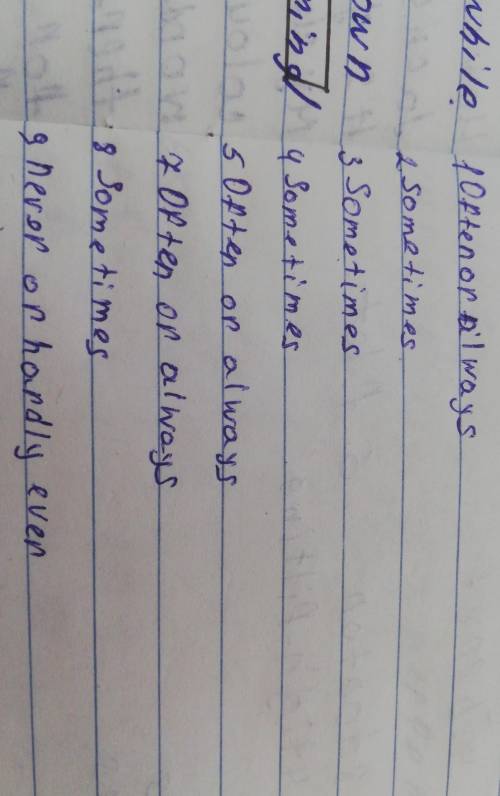 while 1 Often or always
2 Sometimes
own 3 Sometimes
4 Sometimes
5 Often or always
7 Often or always
8 Sometimes
9 never or hardly ever